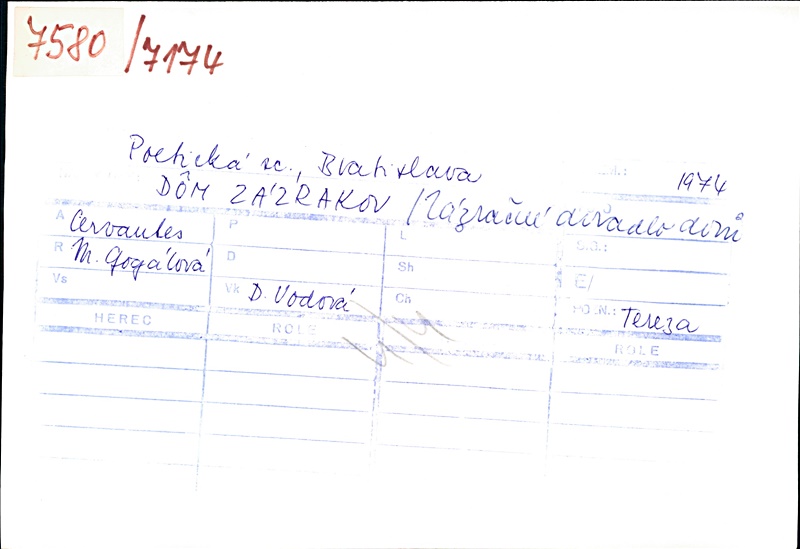 7580 /7174
Poetická sc., Bratislava 1974
DÔM ZÁZRAKOV / Zázračné divadlo divů
A Cervantes P L S.B.:
R M. Gogálová D Sh E/
Vs Vk D. Vodová Ch PO.N.: Tereza
HEREC ROLE ROLE